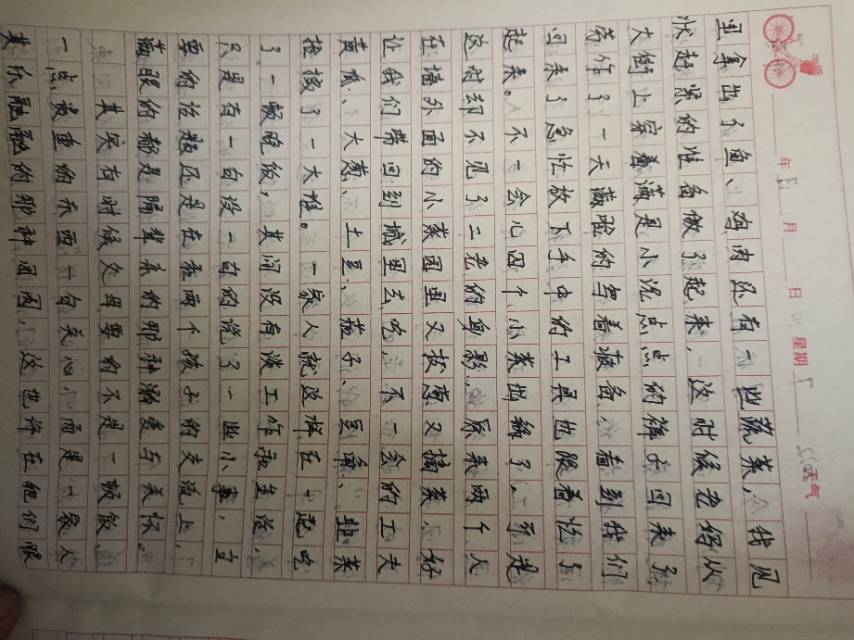 年 月 日 星期 天气
里拿出了鱼、鸡肉还有一些蔬菜，我见
状赶紧的准备做了起来，这时候老妈从
大街上穿着满是小泥点点的裤子回来了
劳作了一天满脸的写着疲备，看到我们
回来了急忙放下手中的工具也跟着忙了
起来。不一会儿四个小菜出锅了，可是
这时却不见了二老的身影，原来两个人
在墙外面的小菜园里又拔葱又摘菜，好
让我们带回到城里去吃，不一会的工夫
黄瓜、大葱、土豆、茄子、豆角、韭菜
捡掇了一大堆。一家人就这样在一起吃
了一顿晚饭，其间没有谈工作和生活，
只是有一句没一句的说了一些小事，主
要的话题还是在和两个孩子的交流上，
满眼的都是隔辈亲的那种溺爱与关怀。
其实有时候父母要的不是一顿饭
一点贵重的东西一句关心，而是一家人
其乐融融的那种团圆，这也许在他们眼